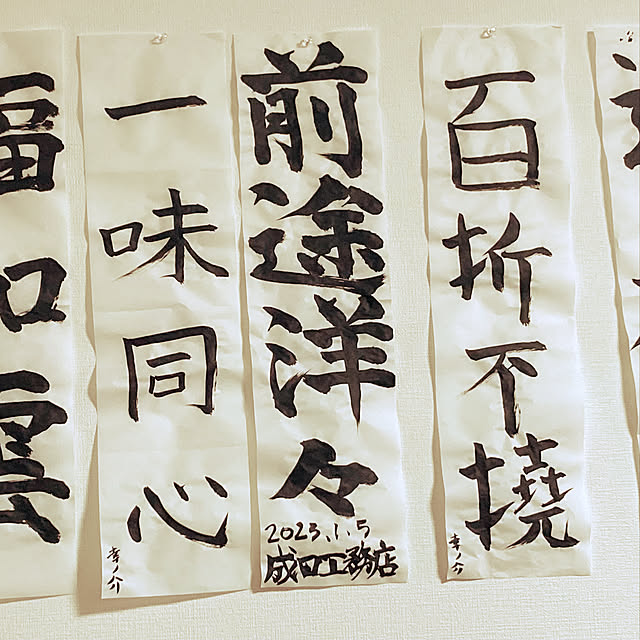 百折不撓
幸ノ介
前途洋々
2023.1.5
成田工務店
一味同心
幸ノ介